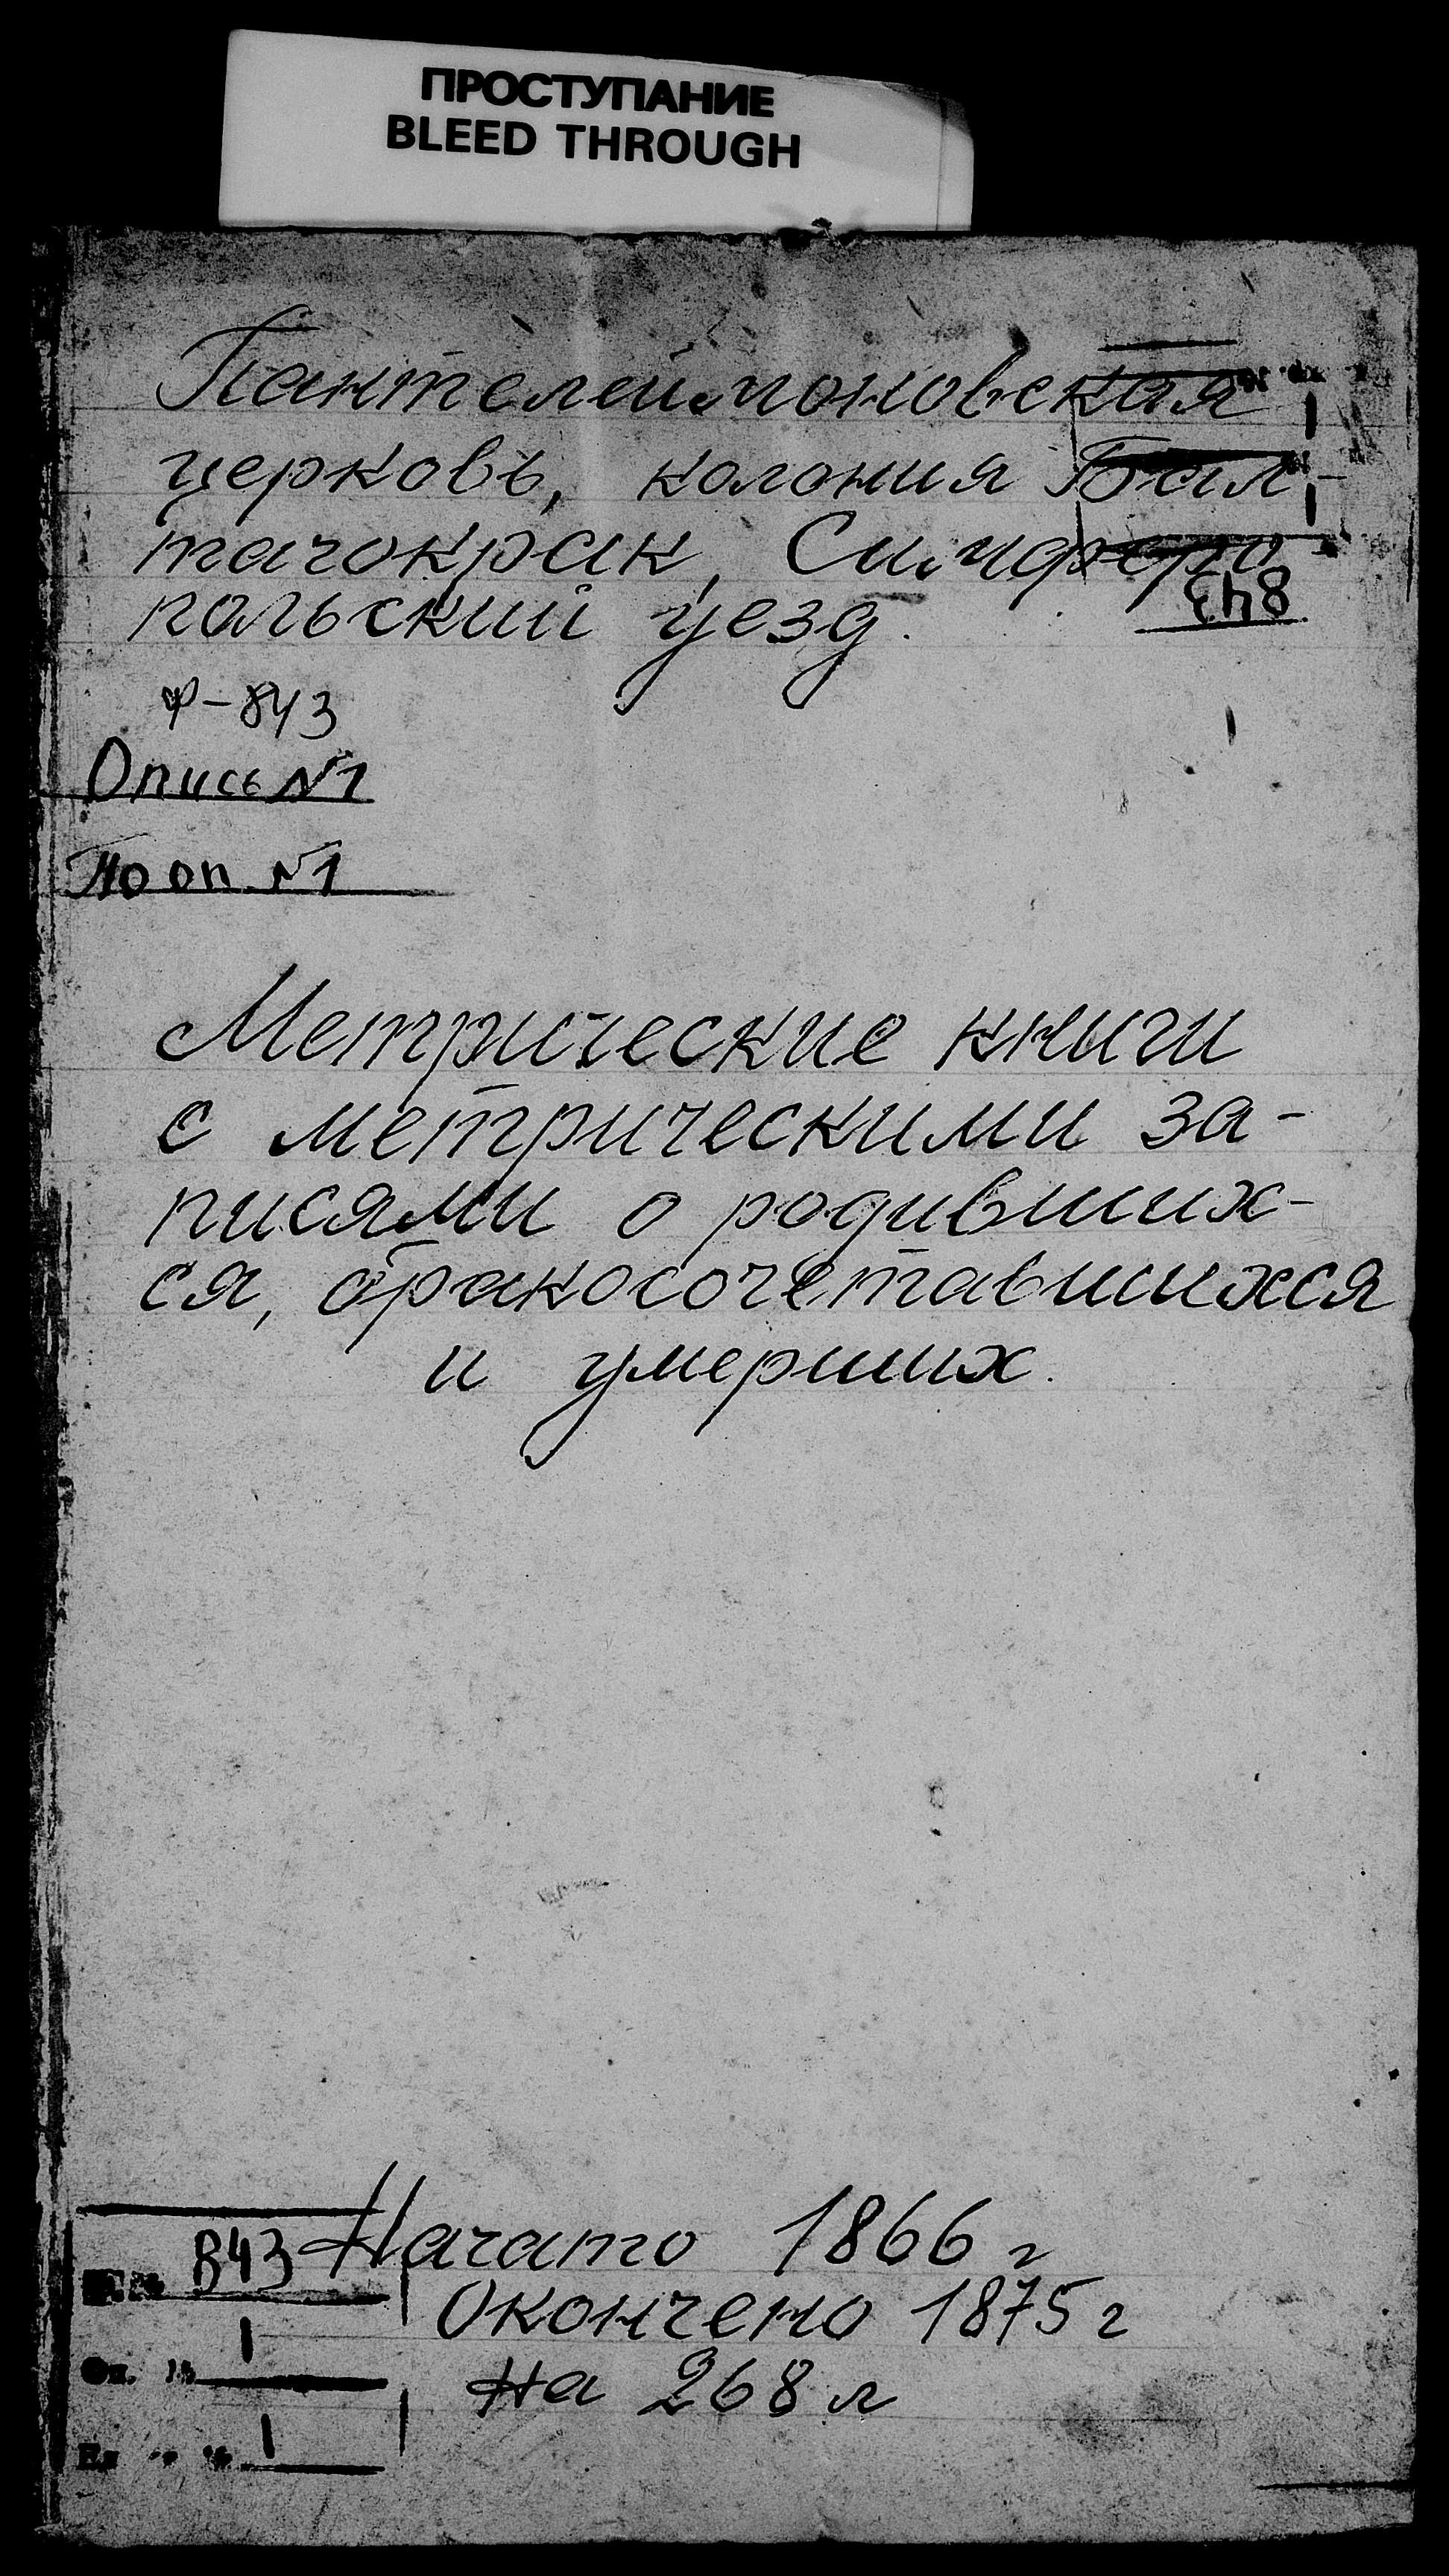 ПРОСТУПАНИЕ
BLEED THROUGH
Пантелеймоновская
церковь, колония Бал-
тачокрак, Симферо
польский уезд.
843
Ф-843
Опись №1
По оп №1
Метрические книги
с метрическими за-
писями о родивших-
ся, бракосочетавшихся
и умерших.
Начато 1866 г
843
Окончено 1875 г
1
Оп. №
на 268 л
1